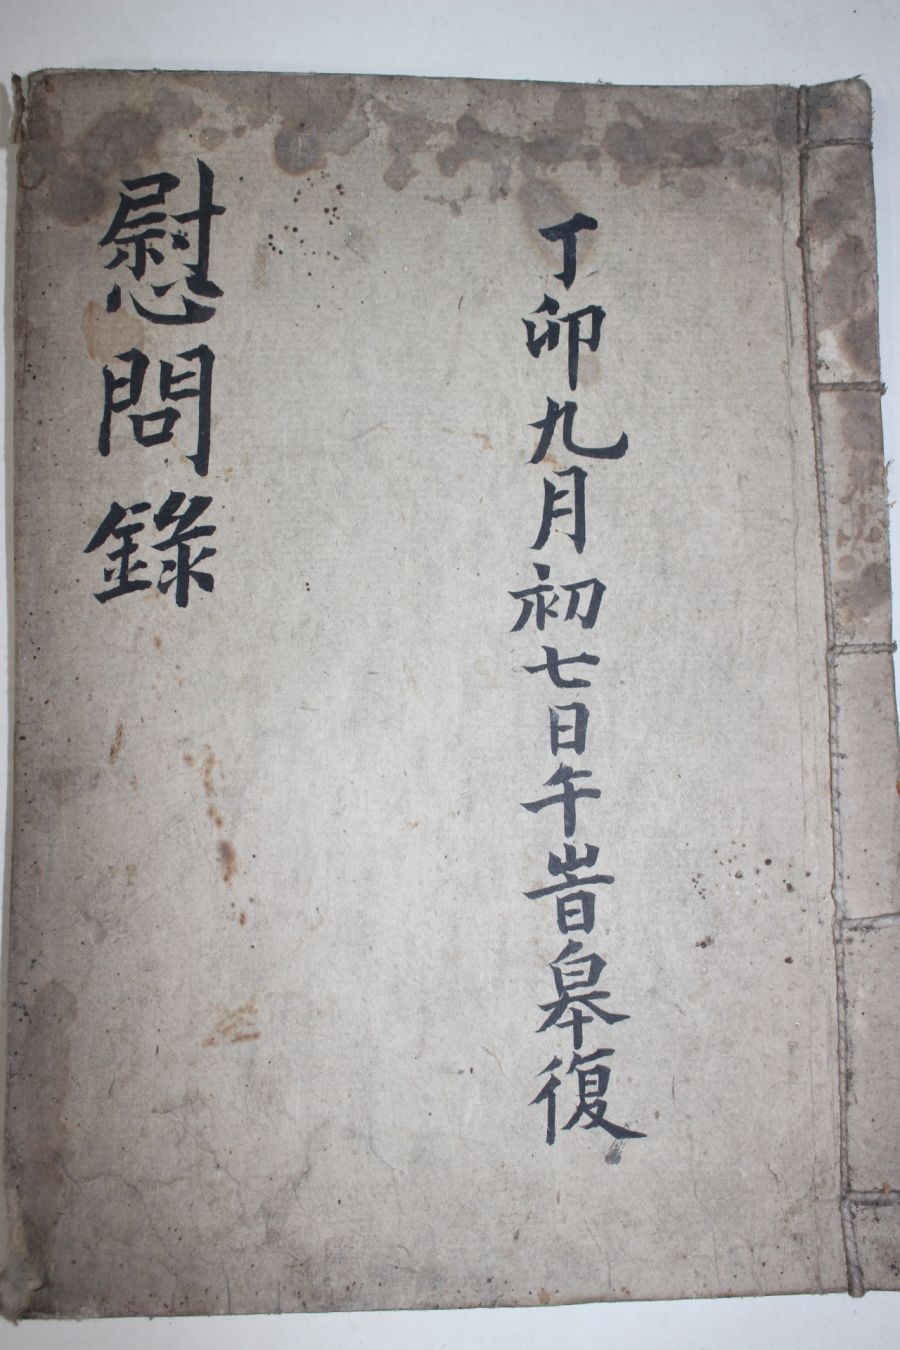 丁卯九月初七日午旹皐復
慰問錄